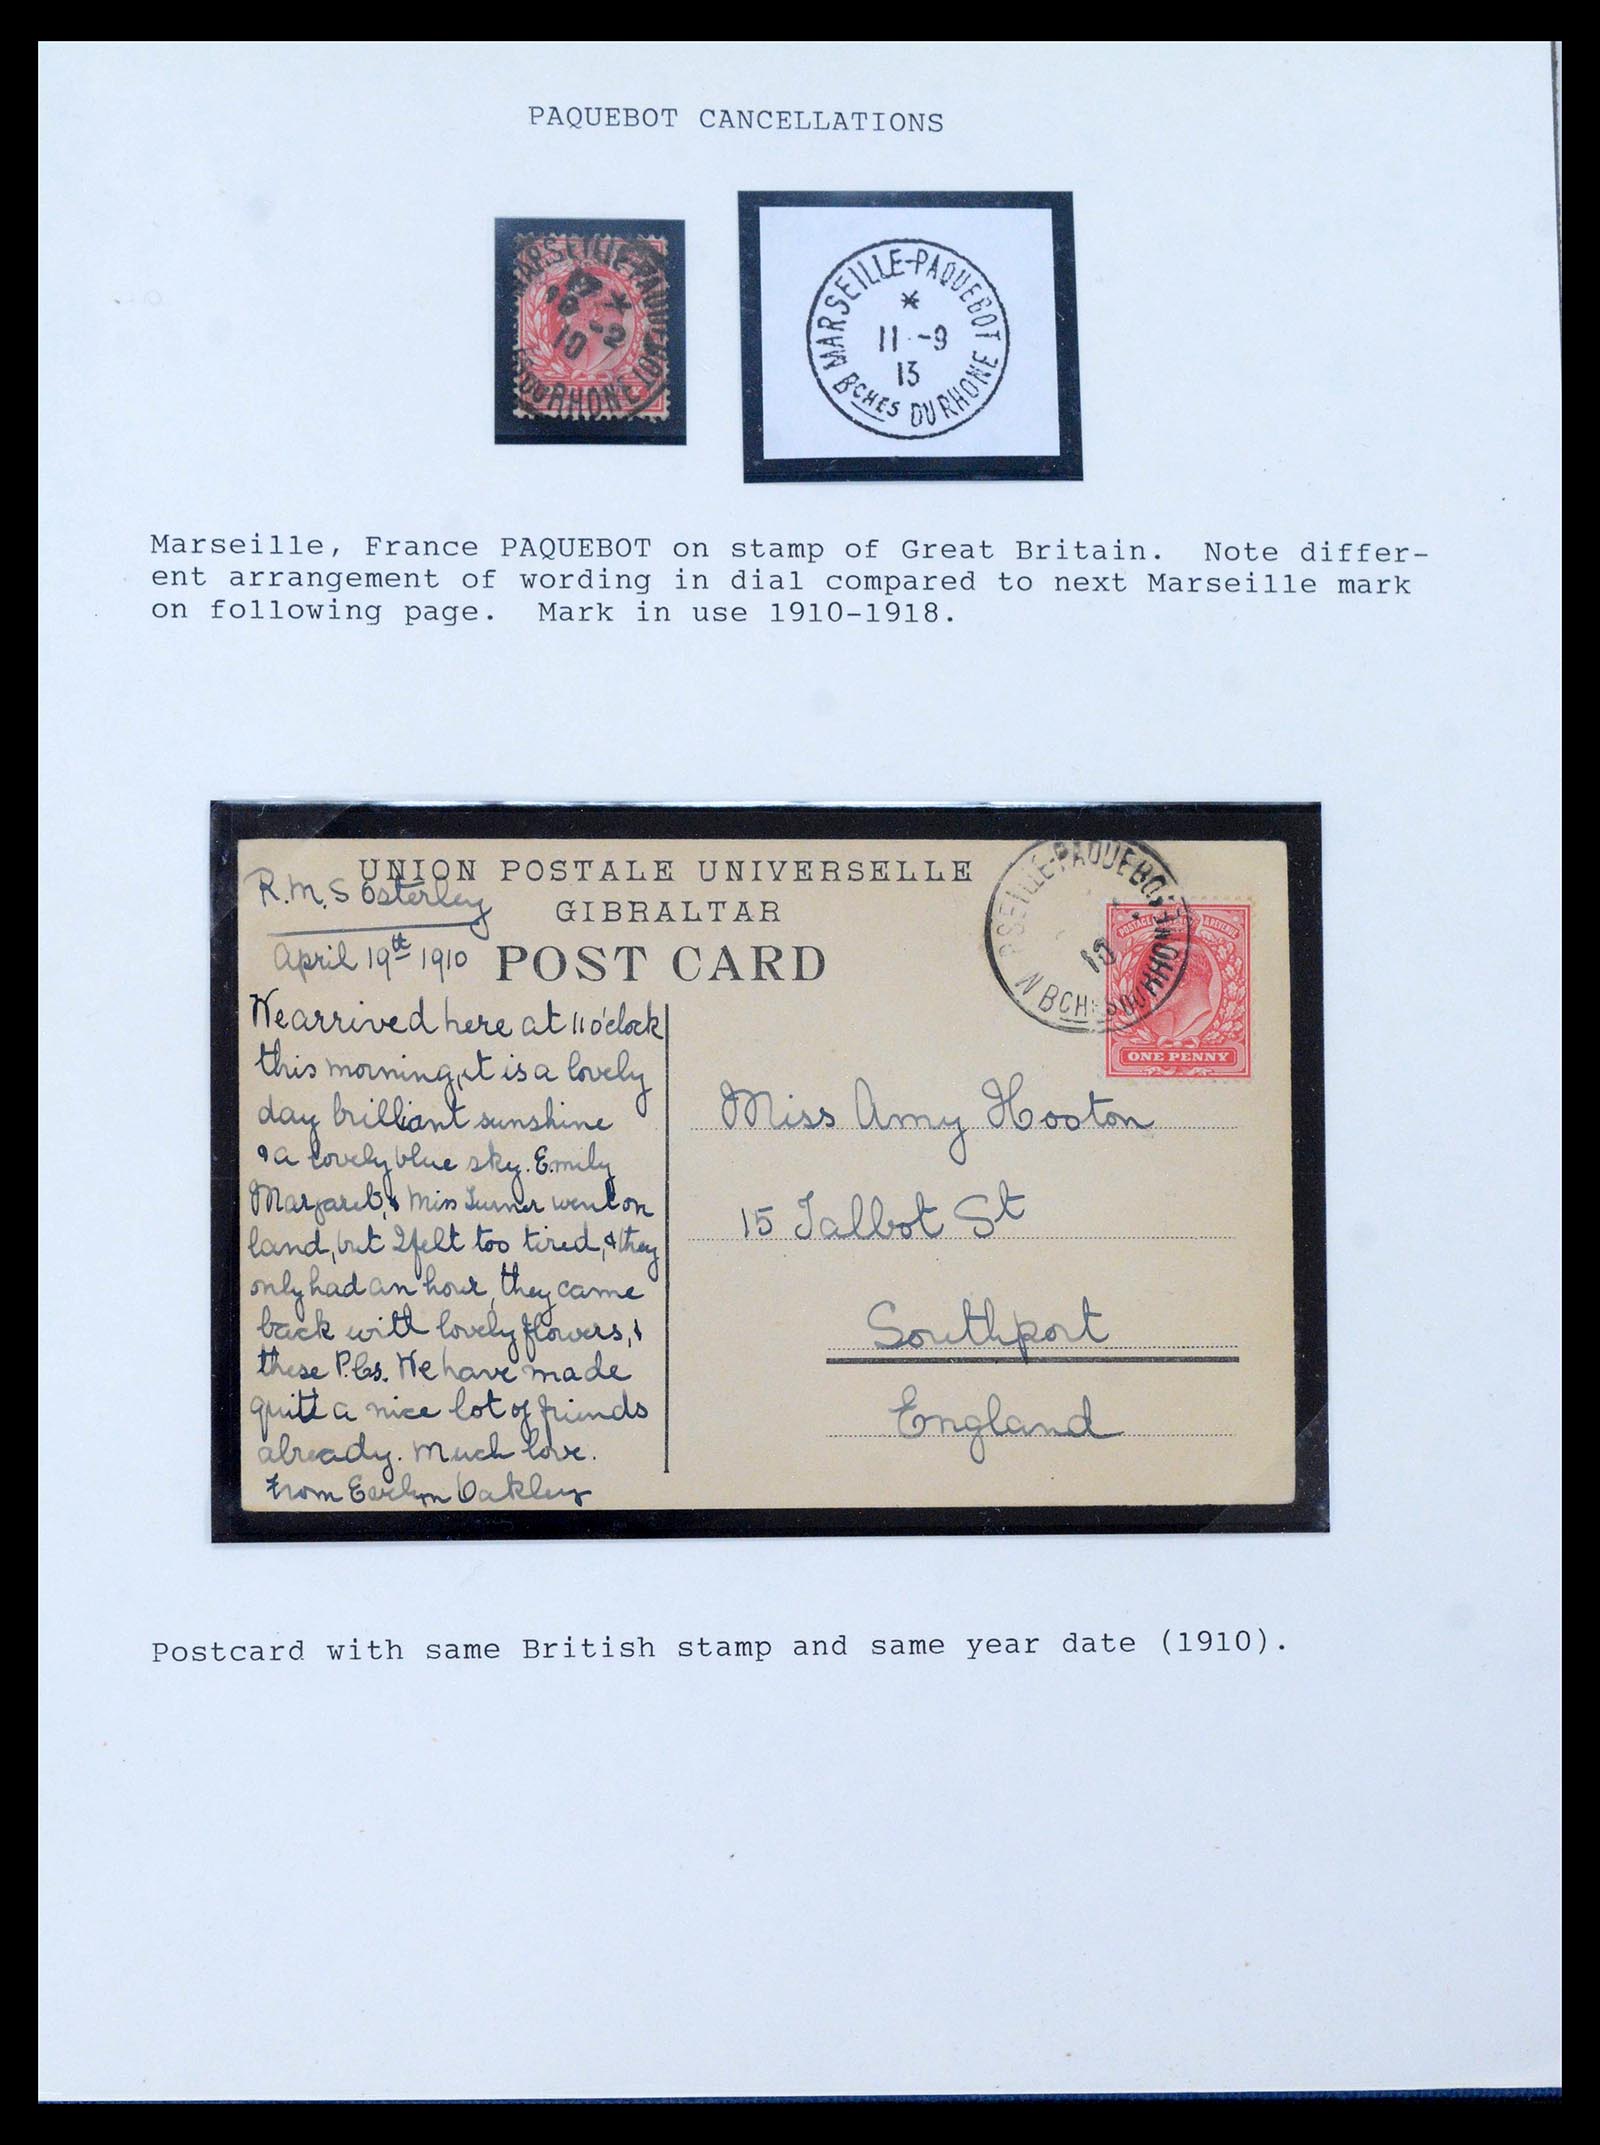 PAQUEBOT CANCELLATIONS
MARSEILLE-PAQUEBOT
10-2
10
DU RHONE
MARSEILLE-PAQUEBOT
*
11 -9
13
BCHES DU RHONE
Marseille, France PAQUEBOT on stamp of Great Britain. Note differ-
ent arrangement of wording in dial compared to next Marseille mark
on following page. Mark in use 1910-1918.
UNION POSTALE UNIVERSELLE
GIBRALTAR
POST CARD
R.M.S Osterley
April 19tt 1910
We arrived here at 11 o'clock
this morning, it is a lovely
day brilliant sunshine
& a lovely blue sky. Emily
Margaret, & Miss Turner went on
land, but I felt too tired, & they
only had an hour, they came
back with lovely flowers, &
these P.Cs. We have made
quite a nice lot of friends
already. Much love.
From Evelyn Oakley
RSEILLE-PAQUEBOT
10
N BCHES DU RHONE
POSTAGE REVENUE
ONE PENNY
Miss Amy Hooton
15 Talbot St
Southport
England
Postcard with same British stamp and same year date (1910).